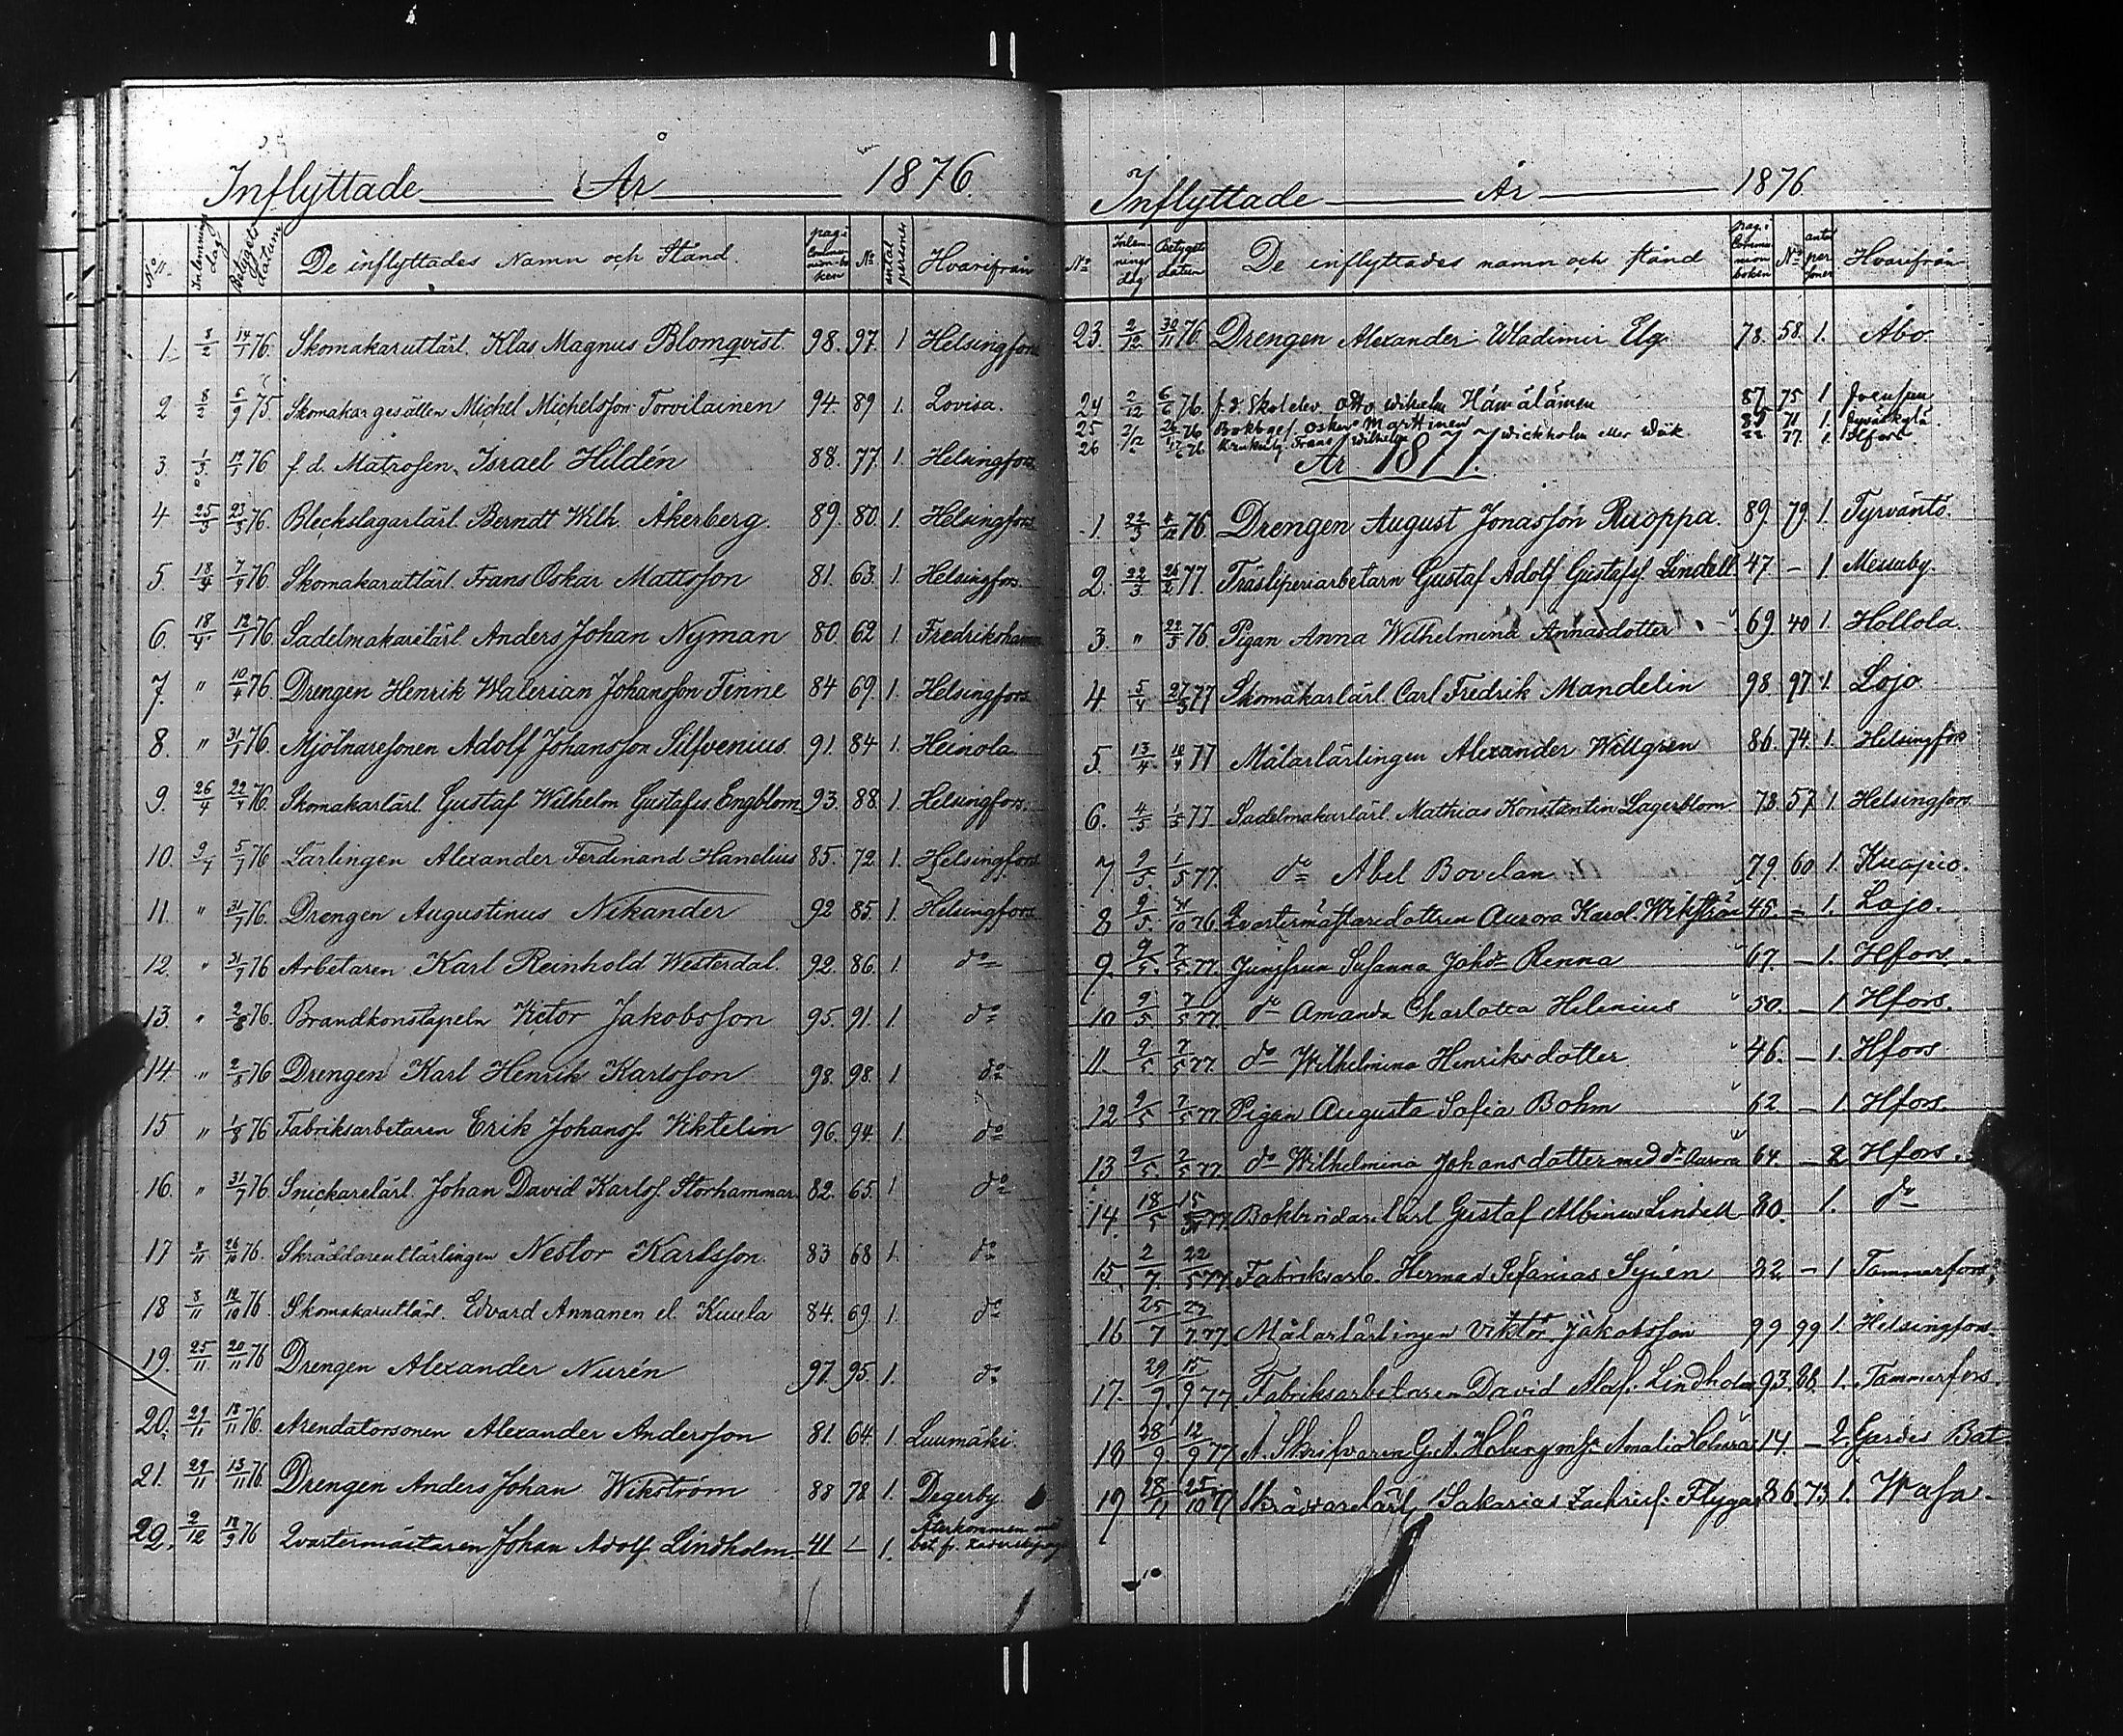 Inflyttade År 1876.
No Inlemnings dag Betygets datum De inflyttades Namn och Stånd. pag: Commu-nion-bo-ken No antal personer Hvarifrån
1. 3/2 14/1 76. Skomakaruttlärl. Klas Magnus Blomqvist. 98. 97. 1 Helsingfors
2 8/3 5/9 75. Skomakargesällen Michel Michelsson Torvilainen 94. 89 1. Lovisa.
3. 76 f. d. Matrosen Israel Hildén 88. 77. 1. Helsingfors
4 25/3 23/3 76. Bleckslagarlärl. Berndt Wilh. Åkerberg. 89. 80. 1. Helsingfors
5. 18/4 7/4 76. Skomakaruttlärl. Frans Oskar Mattsson 81. 63. 1. Helsingfors
6. 18/4 12/1 76. Sadelmakarelärl. Anders Johan Nyman 80. 62 1. Fredrikshamn
7. " 10/4 76 Drengen Henrik Walerian Johansson Finne 84 69. 1. Helsingfors
8. " 31/1 76. Mjölnaresonen Adolf Johansson Silfvenius. 91. 84 1. Heinola
9. 26/4 22/4 76. Skomakarlärl. Gustaf Wilhelm Gustafss. Engblom 93. 88. 1. Helsingfors.
10. 9/7 5/7 76 Lärlingen Alexander Ferdinand Hanelius 85. 72. 1. Helsingfors
11. " 31/7 76. Drengen Augustinus Nikander 92 85. 1. Helsingfors
12. " 31/7 76 Arbetaren Karl Reinhold Westerdal. 92. 86. 1. do
13. " 2/8 76. Brandkonstapeln Victor Jakobsson 95. 91. 1. do
14. " 2/8 76 Drengen Karl Henrik Karlsson 98. 98. 1. do
15 " 1/8 76 Fabriksarbetaren Erik Johanss. Wiktelin 96. 94. 1. do
16. " 31/7 76. Snickarelärl. Johan David Karlss. Storhammar 82. 65. 1 do
17 8/11 26/10 76. Skräddareuttlärlingen Nestor Karlsson. 83 68 1. do
18 8/11 12/10 76 Skomakaruttlärl. Edvard Annanen el. Kuula 84. 69. 1. do
19. 25/11 20/11 76 Drengen Alexander Nurén 97. 95. 1. do
20. 29/11 18/11 76. Arendatorsonen Alexander Andersson 81. 64. 1. Luumäki.
21. 29/11 13/11 76. Drengen Anders Johan Wikström 88 78 1. Degerby
22. 2/12 18/9 76 Qvartermästaren Johan Adolf Lindholm 41 – 1. Återkommen med bet. fr.
Inflyttade År 1876
No Inlem-nings dag Betygets datum De inflyttades namn och stånd pag: Commu-nion boken No antal per-soner Hvarifrån
23. 2/12 30/11 76. Drengen Alexander Wladimir Elg. 78. 58. 1. Åbo.
24 2/12 6/6 76. f. d. Skolelev. Otto Wilhelm Hämäläinen 87 75 1 Joensuu
25 2/12 26/ 76 Bokb.ges. Oskar Marttinen 85 71 1. Jyväskylä.
26 76 Frans Wilhelm Wickholm eller Wük 77. 1. Hfors
År 1877.
1. 22/3 4/12 76. Drengen August Jonasson Ruoppa. 89. 79. 1. Tyrväntö.
2. 22/3 26/2 77. Träsliperiarbetarn Gustaf Adolf Gustafss. Lindell 47. – 1. Messuby.
3. " 22/3 76. Pigan Anna Wilhelmina Annasdotter 69 40 1. Hollola.
4 5/4 27/3 77 Skomakarlärl. Carl Fredrik Mandelin 98 97 1. Lojo.
5. 13/4 10/4 77 Målarlärlingen Alexander Willgren 86. 74. 1. Helsingfors
6. 4/5 1/5 77 Sadelmakarlärl. Mathias Konstantin Lagerblom 78. 57. 1. Helsingfors
7. 9/5. 1/5 77. do Abel Bovelan 79. 60 1. Kuopio.
8 9/5. 31/10 76 Qvartermästaredottren Aurora Karol. Wikström 45. – 1. Lojo.
9. 9/5. 7/5 77. Jungfrun Susanna Johdr Renna 67. – 1. Hfors.
10 9/5. 7/5 77. do Amanda Charlotta Helenius 50. – 1. Hfors.
11 9/5. 7/5 77. do Wilhelmina Henriksdotter 46. – 1. Hfors
12 9/5 7/5 77 Pigan Augusta Sofia Bohm 62 – 1. Hfors.
13 9/5. 7/5 77 do Wilhelmina Johansdotter med dr Aurora 64. – 2 Hfors.
14. 18/5 15/5 77 Bokbindarelärl Gustaf Albinus Lindell 80. 1. do
15. 2/7. 22/5 77. Fabriksarb. Herman Sefanias Syrén 32. – 1 Tammerfors,
16 25/7 23/7 77 Målarlärlingen Viktor Jakobsson 99 99 1. Helsingfors
17. 29/9. 15/9 77 Fabriksarbetaren David Lindholm 93. 88. 1. Tammerfors.
18 28/9. 12/9 77 A. Skrifvaren 14. – 2. Gardes Bat
19 28/11 25/10 77 Skräddarelärl. Sakarias Zachriss. Flygar 86. 73 1. Wasa.